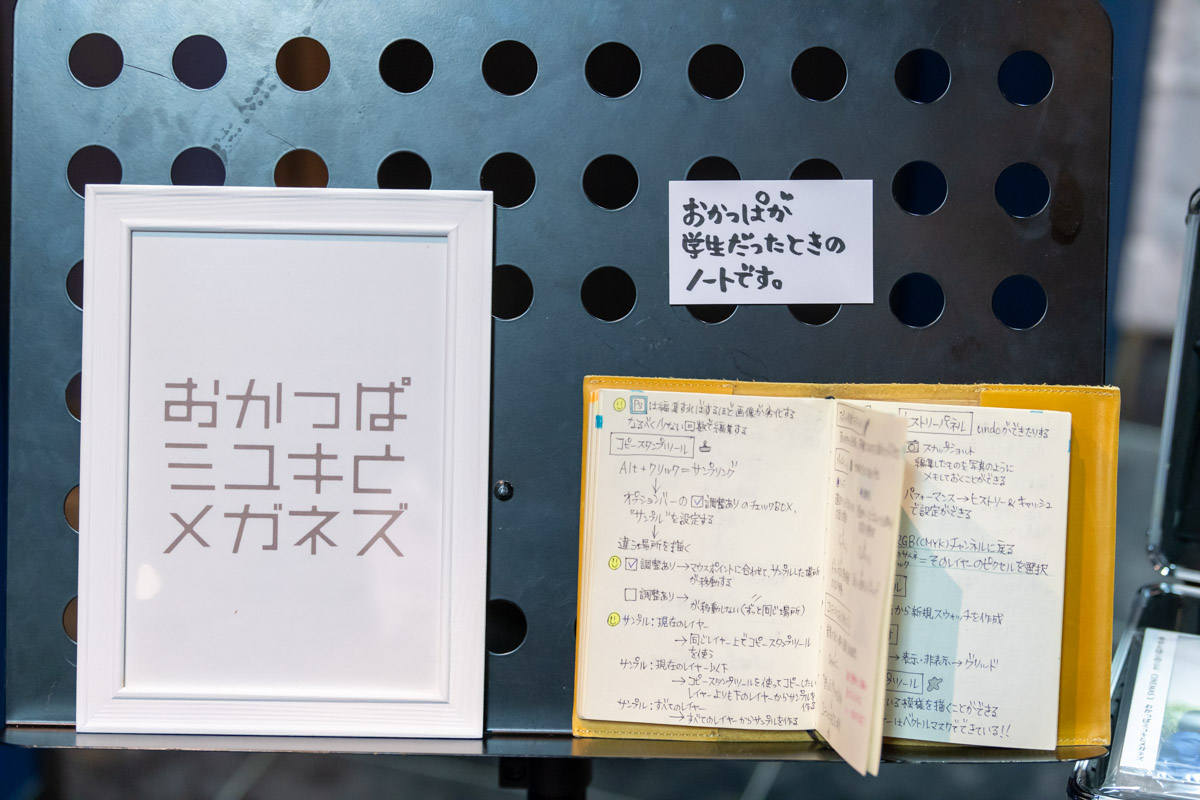 おかっぱ
ミユキと
メガネズ
おかっぱが
学生だったときの
ノートです。
Psは編集すればするほど画像が劣化する
なるべく少ない回数で編集する
コピースタンプツール
Alt+クリック=サンプリング
↓
オプションバーの☑調整ありのチェックをOK、
"サンプル"を設定する
↓
違う場所を描く
☑調整あり→マウスポイントに合わせて、サンプルした場所
が移動する
□調整あり→
が移動しない(ずっと同じ場所)
サンプル:現在のレイヤー
→同じレイヤー上でコピースタンプツール
を使う
サンプル:現在のレイヤー以下
→コピースタンプツールを使ってコピーしたい
レイヤーよりも下のレイヤーからサンプルを
作る
サンプル:すべてのレイヤー
→すべてのレイヤーからサンプルを作る
ヒストリーパネル undoができたりする
スナップショット
編集したものを写真のように
メモしておくことができる
パフォーマンス→ヒストリー&キャッシュ
で設定ができる
RGB(CMYK)チャンネルに戻る
=そのレイヤーのピクセルを選択
から新規スウォッチを作成
→表示・非表示→グリッド
ツール
いる模様を描くことができる
ーはベクトルマスクでできている!!